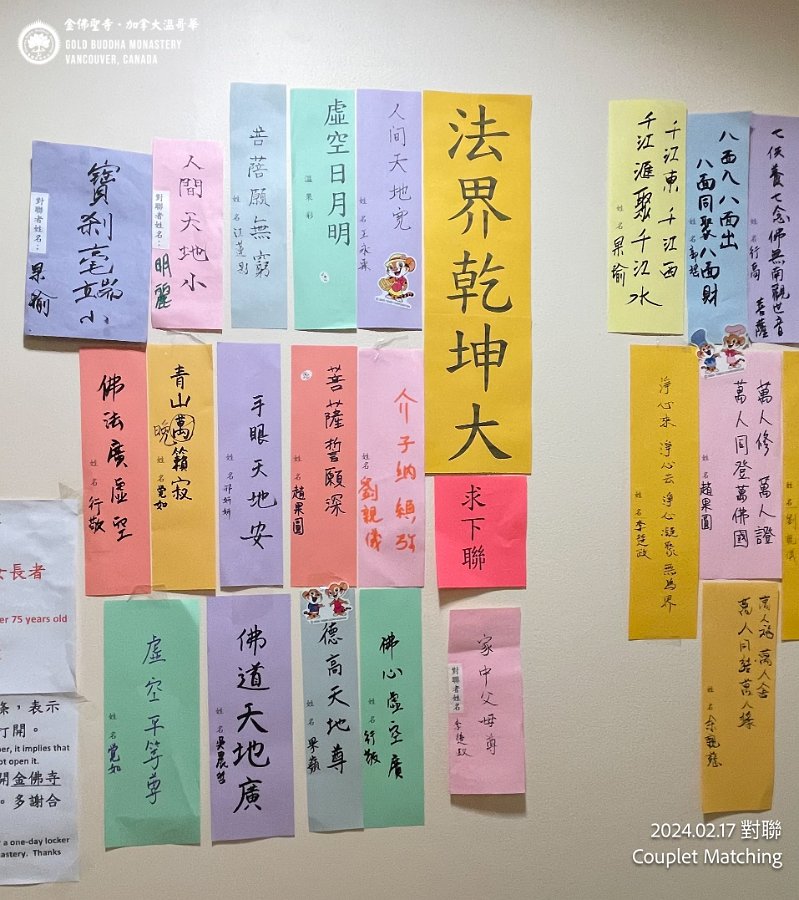 金佛聖寺·加拿大溫哥華
GOLD BUDDHA MONASTERY
VANCOUVER, CANADA
法界乾坤大
求下聯
人间天地宽
姓名 王永霖
虛空日月明
溫果彩
菩薩願無窮
姓名
人間天地小
對聯者姓名：
明麗
寶剎亳端小
對聯者姓名：
果瑜
介子纳須弥
姓名 劉親儀
菩薩誓願深
姓名 趙果圓
手眼天地安
姓名
青山萬籟寂
晚
姓名 覺如
佛法廣虛空
姓名 行敬
家中父母尊
對聯者姓名： 李捷政
佛心虛空廣
姓名 行敬
德高天地尊
姓名 果嶺
佛道天地廣
姓名
虛空平等尊
姓名 覺如
七供養七念佛無南觀世音
菩薩
姓名 行高
八西入八西出
八面同聚八面財
姓名
千江東 千江西
千江滙聚千江水
姓名 果瑜
萬人修 萬人證
萬人同登萬佛國
姓名 趙果圓
淨心來 淨心去 淨心凝聚無為界
姓名 李捷政
萬人福 萬人合
萬人同結萬人緣
姓名
長者
er 75 years old
條，表示
打開。
ber, it implies that
not open it.
開金佛寺
。多謝合
r a one-day locker
nastery. Thanks
2024.02.17 對聯
Couplet Matching